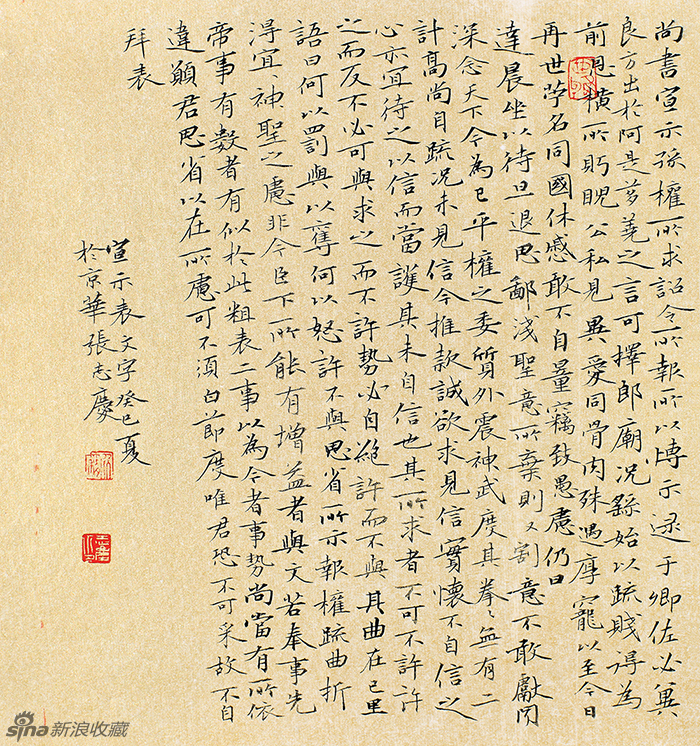 尚書宣示孫權所求詔令所報所以博示逮于卿佐必冀
良方出於阿是芻蕘之言可擇郎廟況繇始以疏賤得為
前恩橫所眄睨公私見異愛同骨肉殊遇厚寵以至今日
再世榮名同國休慼敢不自量竊致愚慮仍日
達晨坐以待旦退思鄙淺聖意所棄則又割意不敢獻聞
深念天下今為已平權之委質外震神武度其拳々無有二
計高尚自疏況未見信今推款誠欲求見信實懷不自信之
心亦宜待之以信而當護其未自信也其所求者不可不許許
之而反不必可與求之而不許勢必自絕許而不與其曲在己里
語曰何以罰與以奪何以怒許不與思省所示報權疏曲折
得宜、神聖之慮非今臣下所能有增益者與文若奉事先
帝事有數者有似於此粗表二事以為今者事勢尚當有所依
違願君思省以在所慮可不須白節度唯君恐不可采故不自
拜表
宣示表文字癸巳夏
於京華張志慶
sina新浪收藏